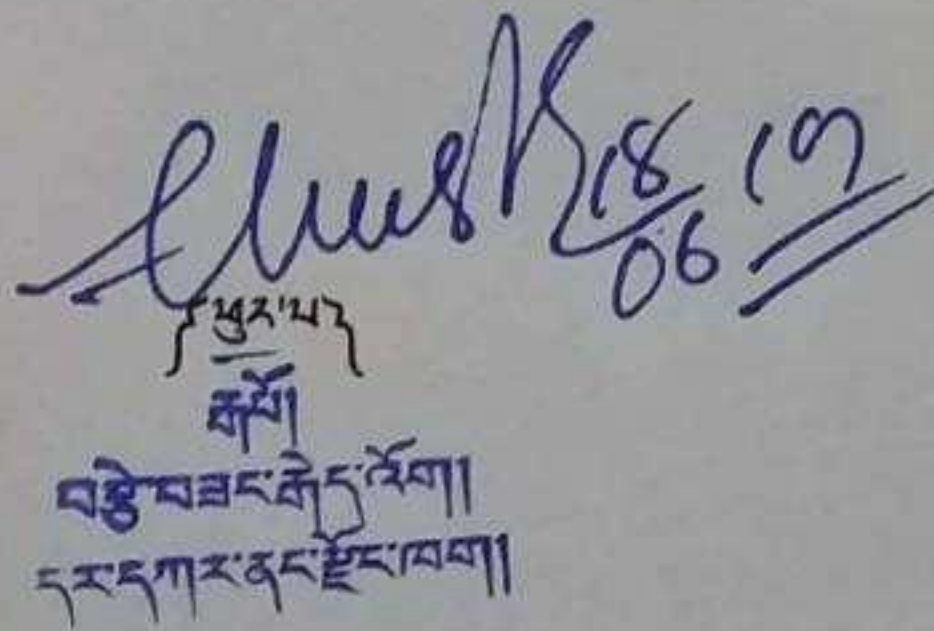 18/06/19
{ཕུར་པ}
རྒཔོ།
བརྩེ་བཟང་རྒེད་འོག།
དར་དཀར་ནང་རྫོང་ཁག།